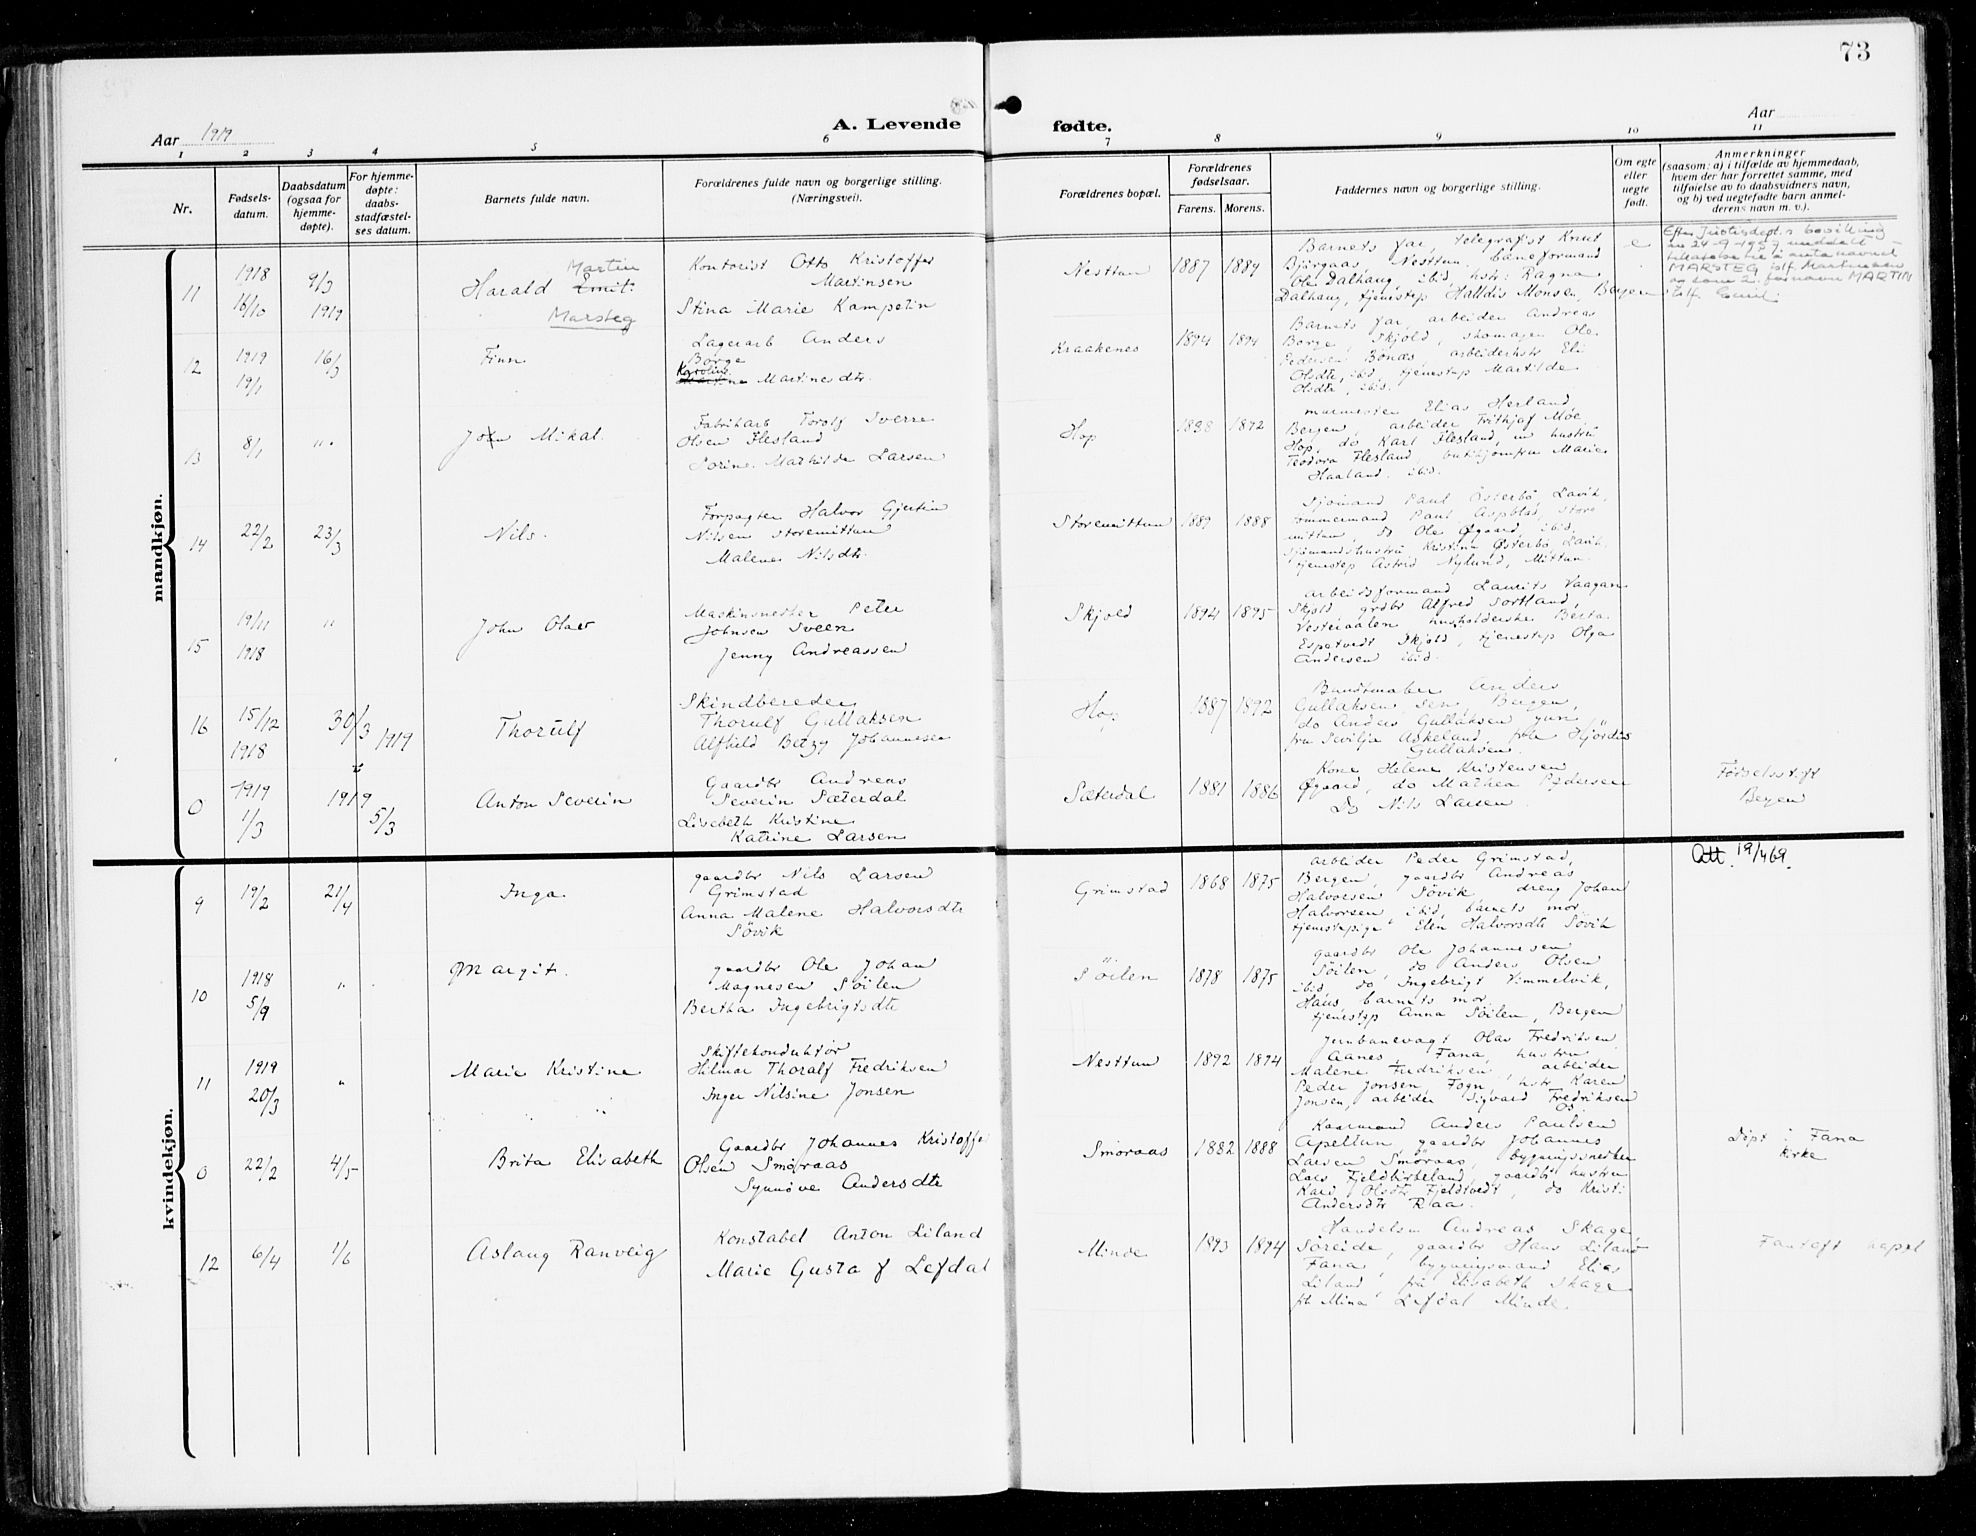 73
Aar 1919
A. Levende fødte.
Aar
1 2 3 4 5 6 7 8 9 10 11
Nr.
Fødsels-
datum.
Daabsdatum
(ogsaa for
hjemme-
døpte).
For hjemme-
døpte:
daabs-
stadfæstel-
ses datum.
Barnets fulde navn.
Forældrenes fulde navn og borgerlige stilling.
(Næringsvei).
Forældrenes bopæl.
Forældrenes
fødselsaar.
Farens. Morens.
Faddernes navn og borgerlige stilling.
Om egte
eller
uegte
født.
Anmerkninger
(saasom: a) i tilfælde av hjemmedaab,
hvem der har forrettet samme, med
tilføielse av to daabsvidners navn,
og b) ved uegtefødte barn anmel-
derens navn m. v.).
mandkjøn.
11
1918
16/10
9/3
1919
Martin
Harald Emil
Marsteg
Kontorist Otto Kristoffer
Martinsen
Stina Marie Kampetin
Nesttun
1887 1889
Barnets far, telegrafist Knut
Bjørgaas Nesttun, baneformand
Ole Dalhaug, ibid, hstr: Ragna
Dalhaug, tjenestep Halldis Monsen, Bergen
e
Efter Justisdept.s bevilling
MARSTEG istf. Martinsen
og som 2. fornavn MARTIN
istf. Emil
12
1919
19/1
16/3
Finn
Lagerarb Anders
Børge
Karoline
Martinesdtr.
Kraakenes
1894 1894
Barnets far, arbeider Andreas
Børge, Skjold, skomager Ole
Pedersen Bønæs, arbeiderhstr Eli
Olsdtr, ibid, tjenestep Martilde
Olsdtr, ibid.
13
8/1
" "
John Mikal.
Fabrikarb Torolf Sverre
Olsen Flesland
Sorine Mathilde Larsen
Hop
1898 1892
murmester Elias Herland
Bergen, arbeider Frithjof Moe,
Hop, do Karl Flesland, m hustru
Teodora Flesland, butikjomfru Marie
Haaland ibid.
14
22/2
23/3
Nils.
Forpagter Halvor Gjertin
Nilsen Storemittun
Malene Nilsdtr
Storemittun
1889 1888
Sjømand Paul Østerbø Lavik,
tømmermand Paul Aspblad, store
mittun, do Ole Øgaard, ibid,
sjømandshustru Kristina Østerbø Lavik,
tjenestep Astrid Nylund, Mittun.
15
19/11
1918
"
John Olav
Maskinsnekker Peter
Johnsen Sveen
Jenny Andreassen
Skjold
1894 1895
arbeidsformand Laurits Vaagan
Skjold grdbr Alfred Sortland,
Vesteraalen husholderske Berta
Espetvedt Skjold, tjenestep Olga
Andersen ibid.
16
15/12
1918
30/3 1919
Thorulf
Skindbereder
Thorulf Gullaksen
Alfhild Betzy Johannesen
Hop
1887 1892
Buntmaker Anders
Gullaksen sen, Bergen,
do Anders Gullaksen jun
fru Sevilja Askeland, frk Hjørdis
Gullaksen.
0
1919
1/3
1919
5/3
Anton Severin
Gaardbr Andreas
Severin Sæterdal
Lisebeth Kristine
Katrine Larsen
Sæterdal
1881 1886
Kone Helene Kristensen
Øgaard, do Mathea Pedersen
Do Nils Larsen
Fødselsstift
Bergen
kvindekjøn.
9
19/2
21/4
Inga.
gaardbr Nils Larsen
Grimstad
Anna Malene Halvorsdtr
Søvik
Grimstad
1868 1875
arbeider Peder Grimstad,
Bergen, gaardbr Andreas
Halvorsen Søvik, dreng Johan
Halvorsen, ibid, barnets mor,
tjenestepige Elen Halvorsdtr Søvik
Att. 19/4 69.
10
1918
5/9
"
Margit.
gaardbr Ole Johan
Magnesen Søilen
Bertha Ingebrigtsdtr
Søilen
1878 1875
gaardbr Ole Johannesen
Søilen, do Anders Olsen
ibid, do Ingebrigt Timmelvik,
Haus, barnets mor,
tjenestep Anna Søilen, Bergen
11
1919
20/3
"
Marie Kristine
Skiftekonduktør
Hilmar Thoralf Fredriksen
Inger Nilsine Jonsen
Nesttun
1892 1894
Jernbanevagt Olav Fredriksen
Aanes, Fana, hustru
Malene Fredriksen, arbeider
Peder Jonsen, Fogn, hstr Karen
Jonsen, arbeider Sigvard Fredriksen
Os.
0
22/2
4/5
Brita Elisabeth
Gaardbr Johannes Kristoffer
Olsen Smøraas
Synnøve Andersdtr
Smøraas
1882 1888
Kaarmand Anders Paulsen
Apeltun, gaardbr Johannes
Larsen Smøraas, bygningssnekker
Lars Fjeldbirkeland, gaardbr hustru
Kari Olsdtr Fjeldtvedt, do Kristi
Andersdtr Raa.
Døpt i Fana
kirke
12
6/4
1/6
Aslaug Ranveig
Konstabel Anton Liland
Marie Gustaf Lefdal
Minde
1893 1894
Handelsm Andreas Skage
Søreide, gaardbr Hans Liland
Fana, bygningsmand Elias
Liland, fru Elisabeth Skage
frk Mina Lefdal Minde.
Fantoft kapel